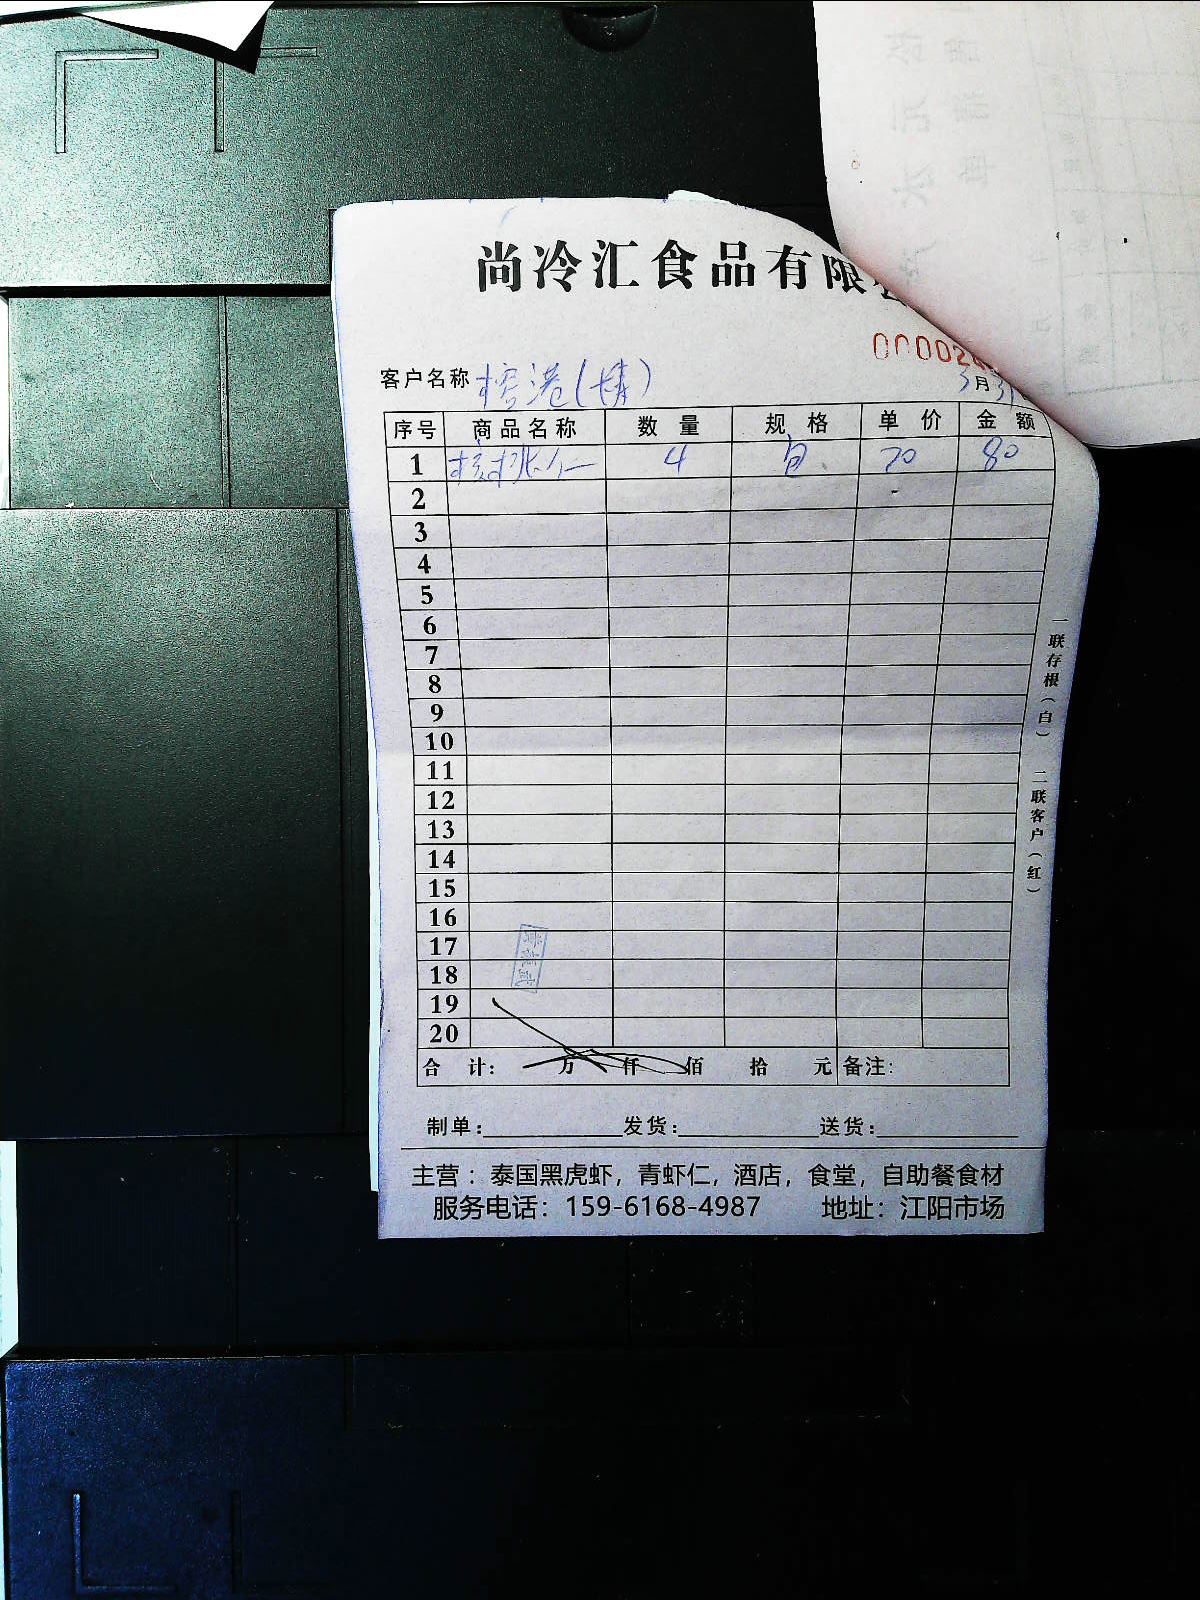 尚冷汇食品有限
00002
客户名称 榕港(精) 3月31
序号 商品名称 数量 规格 单价 金额
1 核桃仁 4 包 20 80
2
3
4
5
6
7
8
9
10
11
12
13
14
15
16
17
18
19
20
合计: 万 仟 佰 拾 元 备注:
制单: 发货: 送货:
主营：泰国黑虎虾，青虾仁，酒店，食堂，自助餐食材
服务电话：159-6168-4987 地址：江阳市场
一联存根(白) 二联客户(红)